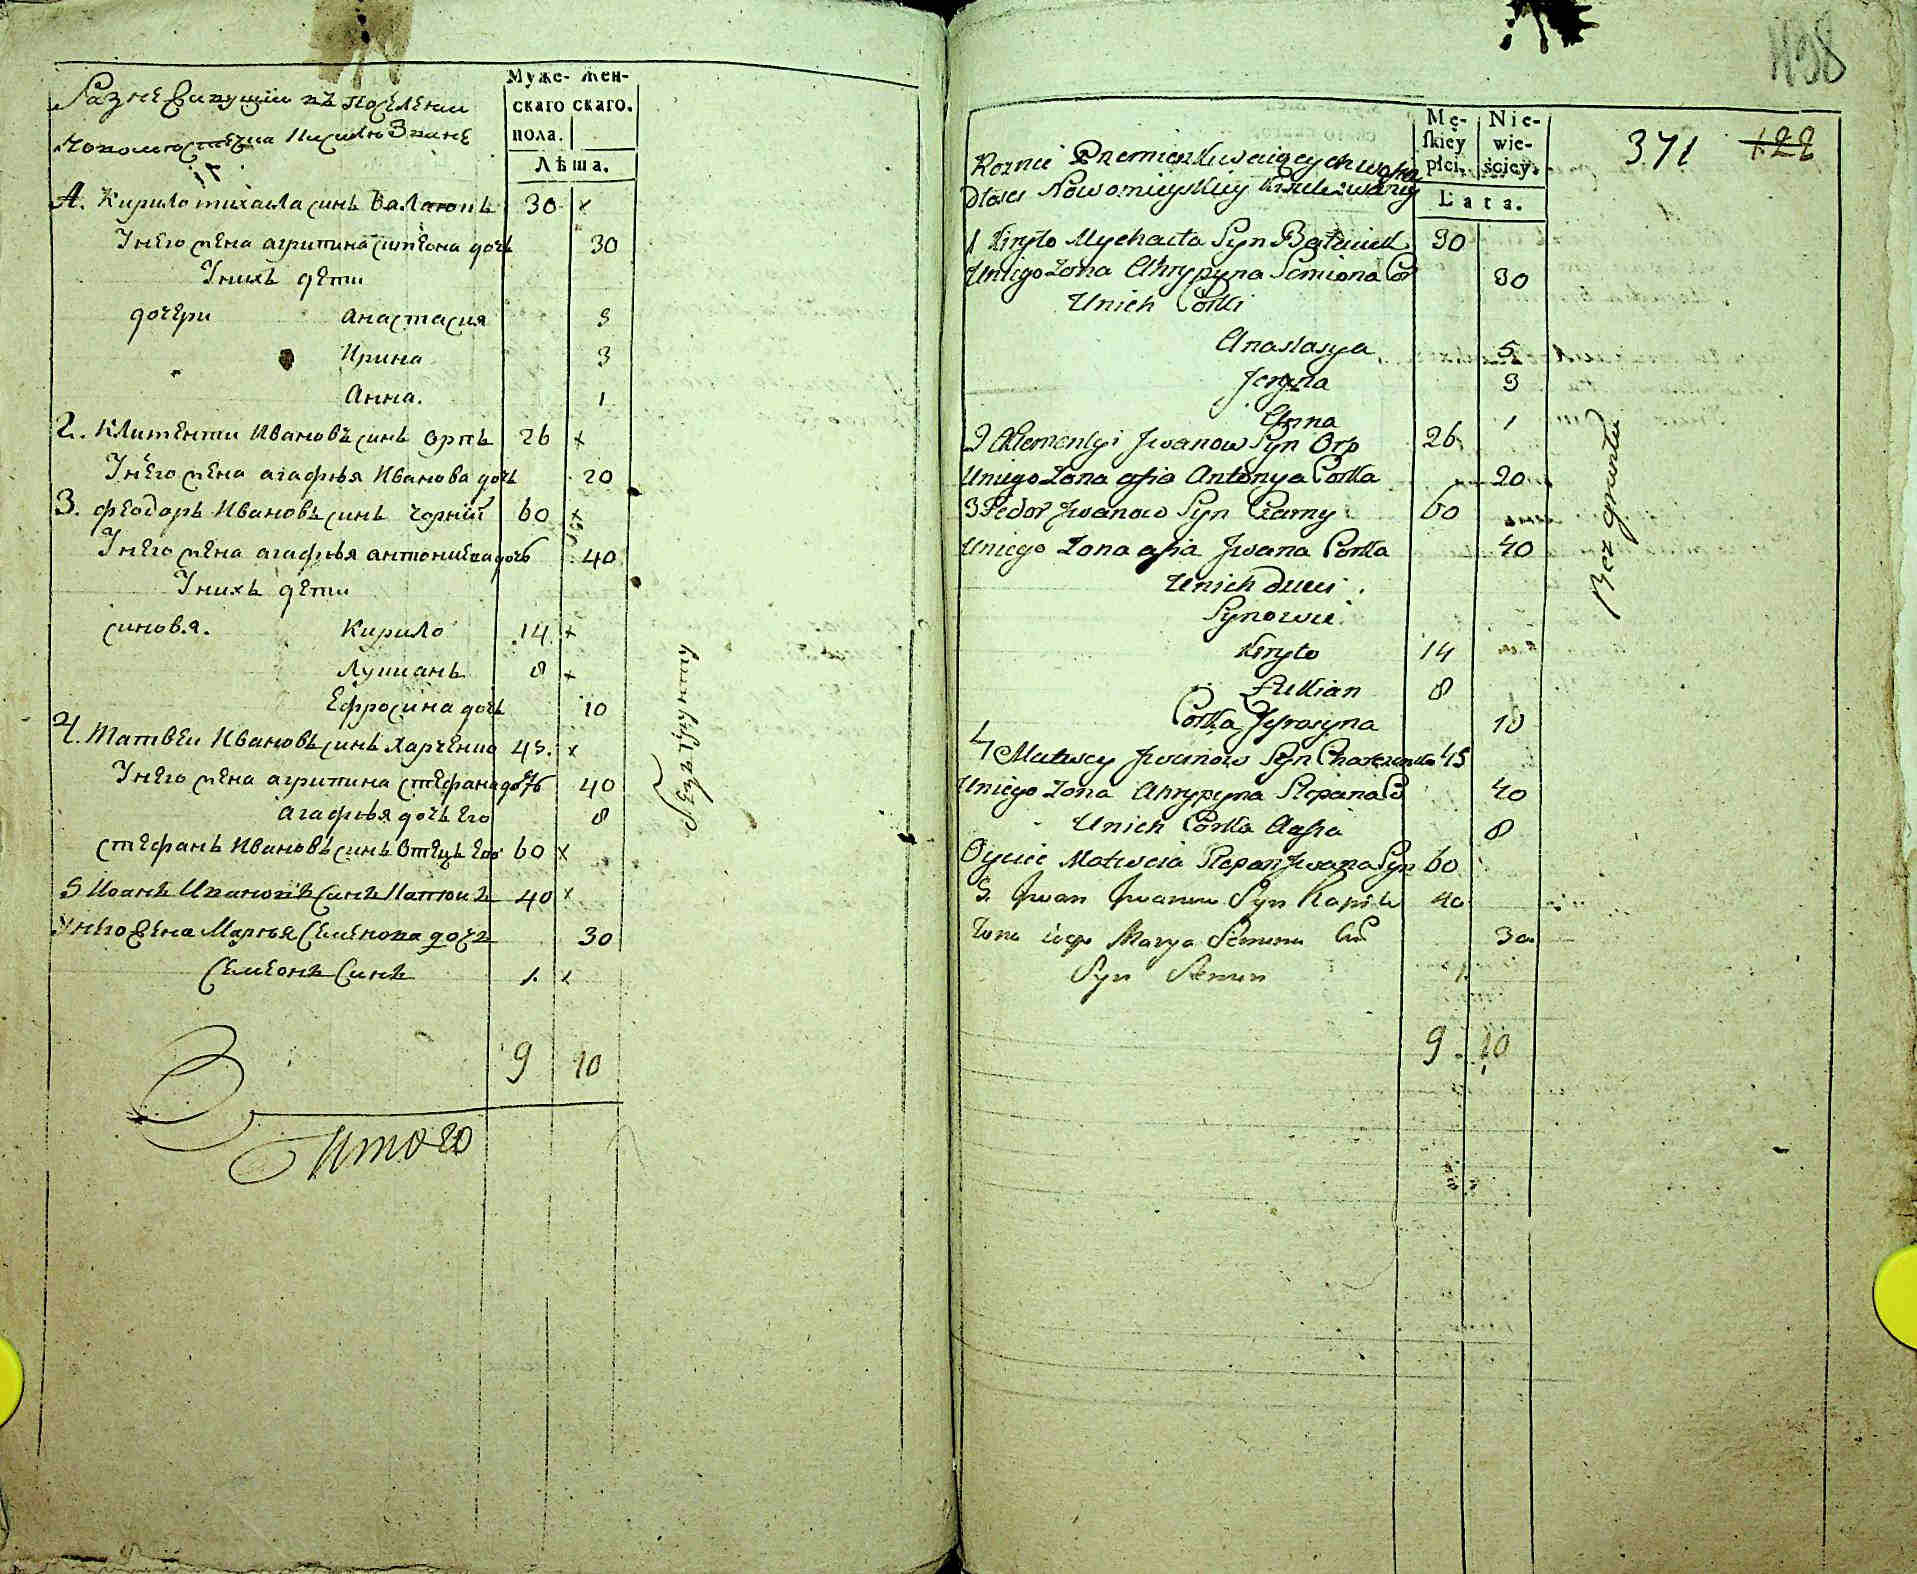 Муже- Жен-
скаго скаго.
пола.
Лѣта.
1. Кирило михаила синъ Балаюкъ 30 x
Унего жена агрипина симеона дочь 30
Унихъ дети
дочери Анастасия 5
Ирина 3
Анна. 1
2. Климентии Ивановъ синъ орпъ 26 x
Унего жена агафъя Иванова дочь 20
3. феодоръ Ивановъ синъ чорнии 60 x
Унего жена агафъя антониева дочь 40
Унихъ дети
синовя. Кирило 14 x
Лукиянъ 8 x
Ефросина дочь 10
4. Матвеи Ивановъ синъ харченко 45. x
Унего жена агрипина стефана дочь 40
Агафъя дочь его 8
стефанъ Ивановъ синъ отецъ его 60 x
5 Иоанъ Ивановъ Синъ 40 x
Унего Жена Маръя Семенова дочъ 30
Семеонъ Синъ 1. x
9 10
Итого
Безъ грунту
438
371 122
Mę- Nie-
skiey wie-
płci. ściey.
Lata.
Nowomieyskiey
1 Kiryło Mychayła Syn Bałaiuk 30
Uniego Zona Ahrypyna Semiona Cor 30
Unich Corki
Anastasya 5
Jeryna 3
Anna 1
2 Klementyi Jwanow Syn Orp 26
Uniego Zona afia Antonya Corka 20
3 Fedor Jwanow Syn Czarny 60
Uniego Zona afia Jwana Corka 40
Unich Dzieci
Synowie
Kiryło 14
Łukian 8
Corka Jefrosyna 10
4 Matwey Jwanow Syn Charczenko 45
Uniego Zona Ahrypyna Stepana C 40
Unich Corka Aafia 8
Oyciec Matweia Stepan Jwana Syn 60
5. Jwan Jwanow Syn 40
Zona iego Marya Semena Co 30
Syn Semen 1.
9. 10
Bez gruntu